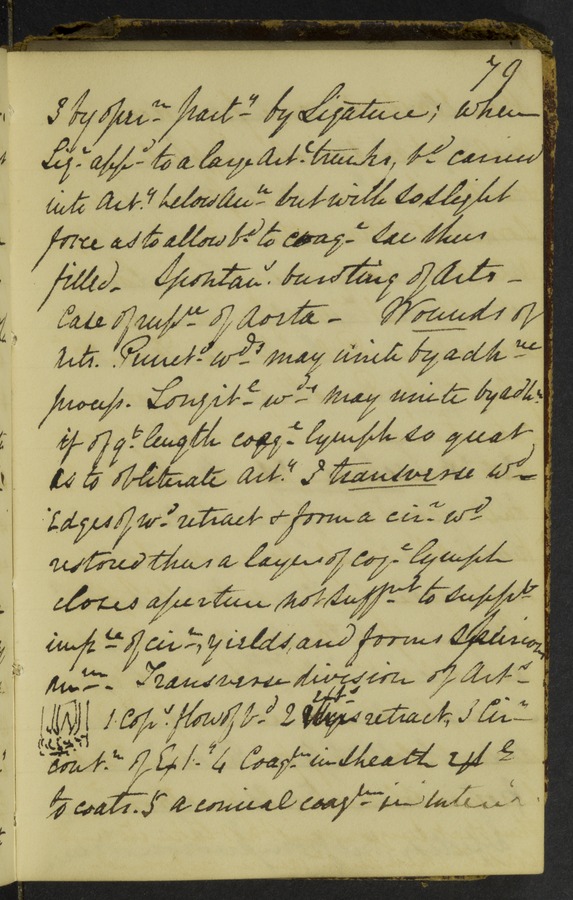 79
3 by oper:n part:y by Ligature; when
Lig:e app:d to a large Art:l trunks, b:d carried
into Art:y below An:m but with so slight
force as to allow b:d to coag:e Sac thus
filled. Spontan:s bursting of Arts –
Case of rupt:re of Aorta – Wounds of
Arts. Punct:d w:ds may unite by adh:ve
process. Longit:l w:ds may unite by adh:n
if of g:t length coag:e lymph so great
as to obliterate art:y 3 transverse w:d
Edges of w:d retract & form a cir:r w:d
restored thus a layer of cog:e lymph
closes aperture not suff:nt to supp:t
imp:se of cir:n, yields, and forms
An:m. Transverse division of Art:s
1 Cop:s flow of b:d 2 retract, 3 Cir:r
cont:n of 4 Coag:m in sheath ext:l
to coats. 5 a conical coag:m in interior